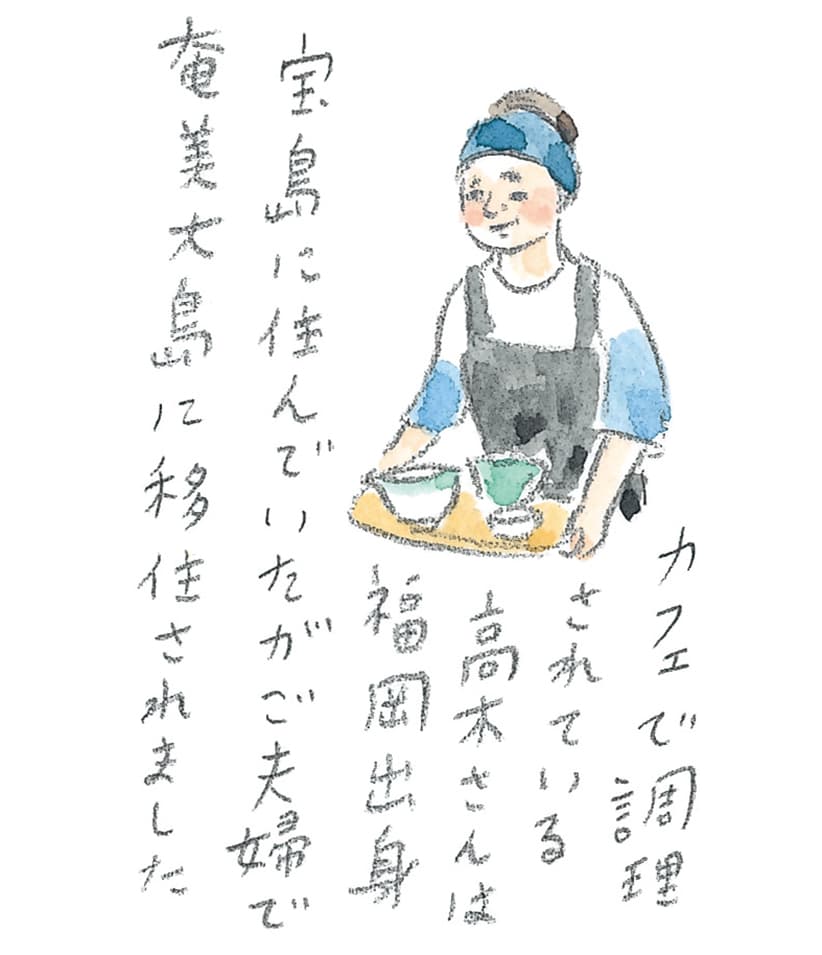 カフェで調理
されている
高木さんは
福岡出身
宝島に住んでいたがご夫婦で
奄美大島に移住されました